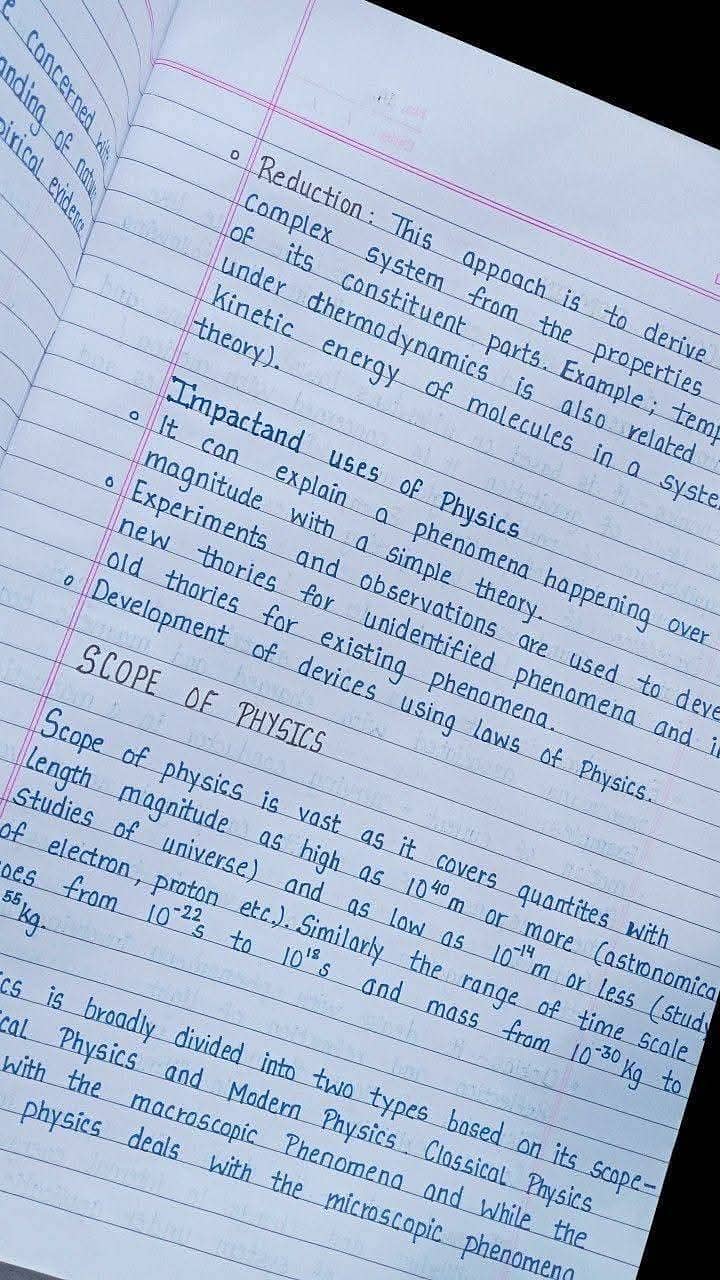 e concerned with
anding of natu
pirical evidence
Reduction: This appoach is to derive
Complex system from the properties
of its constituent parts. Example; temp
under thermodynamics is also related
Kinetic energy of molecules in a syste
theory).
Impactand uses of Physics
It can explain a phenomena happening over
magnitude with a simple theory.
Experiments and observations are used to deve
new thories for unidentified phenomena and i
old thories for existing phenomena.
Development of devices using laws of Physics.
SCOPE OF PHYSICS
Scope of physics is vast as it covers quantites with
length magnitude as high as 10⁴⁰m or more (astronomica
Studies of universe) and as low as 10⁻¹⁴m or less (study
of electron, proton etc.). Similarly the range of time scale
oes from 10⁻²²s to 10¹⁸s and mass from 10⁻³⁰Kg to
⁵⁵kg.
cs is broadly divided into two types based on its scope-
cal Physics and Modern Physics. Classical Physics
with the macroscopic Phenomena and while the
physics deals with the microscopic phenomena